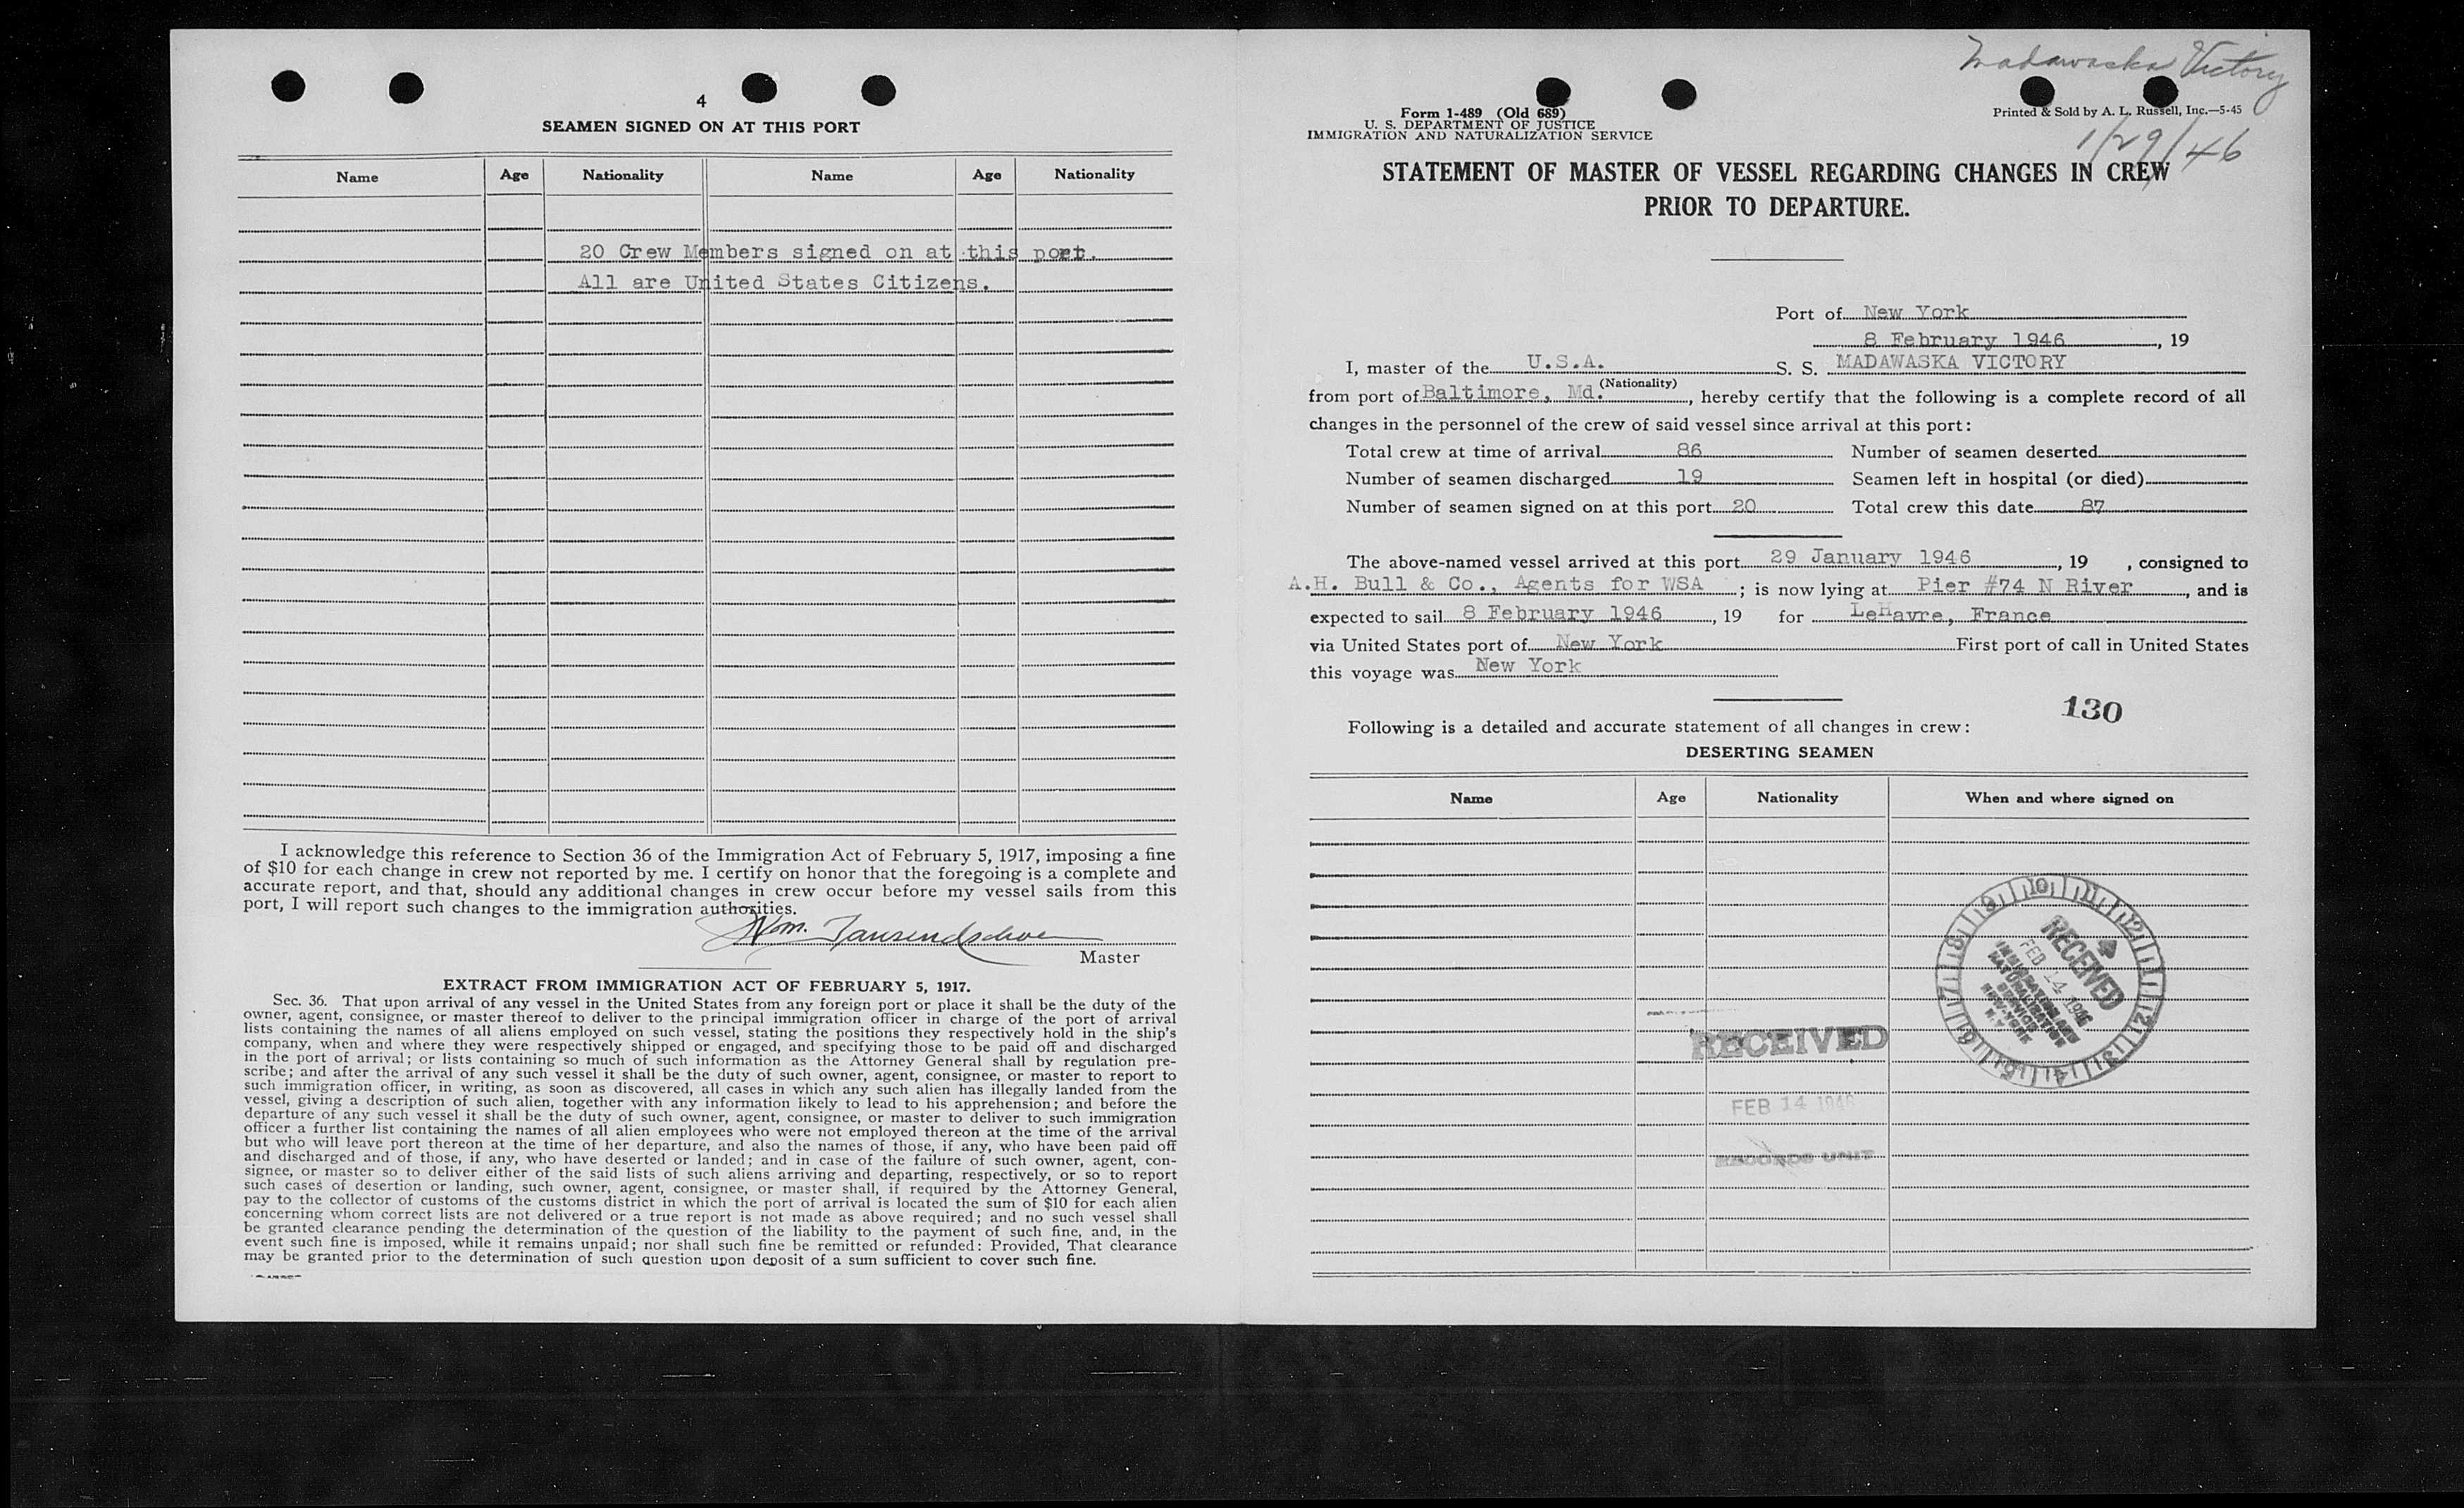 4
SEAMEN SIGNED ON AT THIS PORT
Name Age Nationality Name Age Nationality
20 Crew Members signed on at this port.
All are United States Citizens.
I acknowledge this reference to Section 36 of the Immigration Act of February 5, 1917, imposing a fine
of $10 for each change in crew not reported by me. I certify on honor that the foregoing is a complete and
accurate report, and that, should any additional changes in crew occur before my vessel sails from this
port, I will report such changes to the immigration authorities.
Wm.
Master
EXTRACT FROM IMMIGRATION ACT OF FEBRUARY 5, 1917.
Sec. 36. That upon arrival of any vessel in the United States from any foreign port or place it shall be the duty of the
owner, agent, consignee, or master thereof to deliver to the principal immigration officer in charge of the port of arrival
lists containing the names of all aliens employed on such vessel, stating the positions they respectively hold in the ship's
company, when and where they were respectively shipped or engaged, and specifying those to be paid off and discharged
in the port of arrival; or lists containing so much of such information as the Attorney General shall by regulation pre-
scribe; and after the arrival of any such vessel it shall be the duty of such owner, agent, consignee, or master to report to
such immigration officer, in writing, as soon as discovered, all cases in which any such alien has illegally landed from the
vessel, giving a description of such alien, together with any information likely to lead to his apprehension; and before the
departure of any such vessel it shall be the duty of such owner, agent, consignee, or master to deliver to such immigration
officer a further list containing the names of all alien employees who were not employed thereon at the time of the arrival
but who will leave port thereon at the time of her departure, and also the names of those, if any, who have been paid off
and discharged and of those, if any, who have deserted or landed; and in case of the failure of such owner, agent, con-
signee, or master so to deliver either of the said lists of such aliens arriving and departing, respectively, or so to report
such cases of desertion or landing, such owner, agent, consignee, or master shall, if required by the Attorney General,
pay to the collector of customs of the customs district in which the port of arrival is located the sum of $10 for each alien
concerning whom correct lists are not delivered or a true report is not made as above required; and no such vessel shall
be granted clearance pending the determination of the question of the liability to the payment of such fine, and, in the
event such fine is imposed, while it remains unpaid; nor shall such fine be remitted or refunded: Provided, That clearance
may be granted prior to the determination of such question upon deposit of a sum sufficient to cover such fine.
Madawaska Victory
1/29/46
Form 1-489 (Old 689)
U. S. DEPARTMENT OF JUSTICE
IMMIGRATION AND NATURALIZATION SERVICE
Printed & Sold by A. L. Russell, Inc.—5-45
STATEMENT OF MASTER OF VESSEL REGARDING CHANGES IN CREW
PRIOR TO DEPARTURE.
Port of New York
8 February 1946, 19
I, master of the U.S.A. S. S. MADAWASKA VICTORY
(Nationality)
from port of Baltimore, Md., hereby certify that the following is a complete record of all
changes in the personnel of the crew of said vessel since arrival at this port:
Total crew at time of arrival 86 Number of seamen deserted
Number of seamen discharged 19 Seamen left in hospital (or died)
Number of seamen signed on at this port 20 Total crew this date 87
The above-named vessel arrived at this port 29 January 1946, 19 , consigned to
A.H. Bull & Co., Agents for WSA ; is now lying at Pier #74 N River, and is
expected to sail 8 February 1946, 19 for LeHavre, France
via United States port of New York First port of call in United States
this voyage was New York
130
Following is a detailed and accurate statement of all changes in crew:
DESERTING SEAMEN
Name Age Nationality When and where signed on
RECEIVED
FEB 14 1946
RECORDS UNIT
10 11 12 1 2 3 4 5 6 7 8 9
RECEIVED
1946
IMMIGRATION AND
NATURALIZATION
SERVICE
NEW YORK
N.Y.